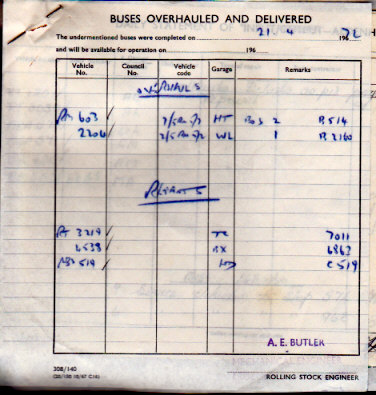 BUSES OVERHAULED AND DELIVERED
The undermentioned buses were completed on 21 . 4 196 72
and will be available for operation on 196
Vehicle No. Council No. Vehicle code Garage Remarks
OVERHAULS
RM 603 / HT Box 2 B 514
2206 / WL 1 B 2160
REPAINTS
RT 3219 / 7011
4538 / BX 6863
519 / C 519
A. E. BUTLER
308/140
ROLLING STOCK ENGINEER